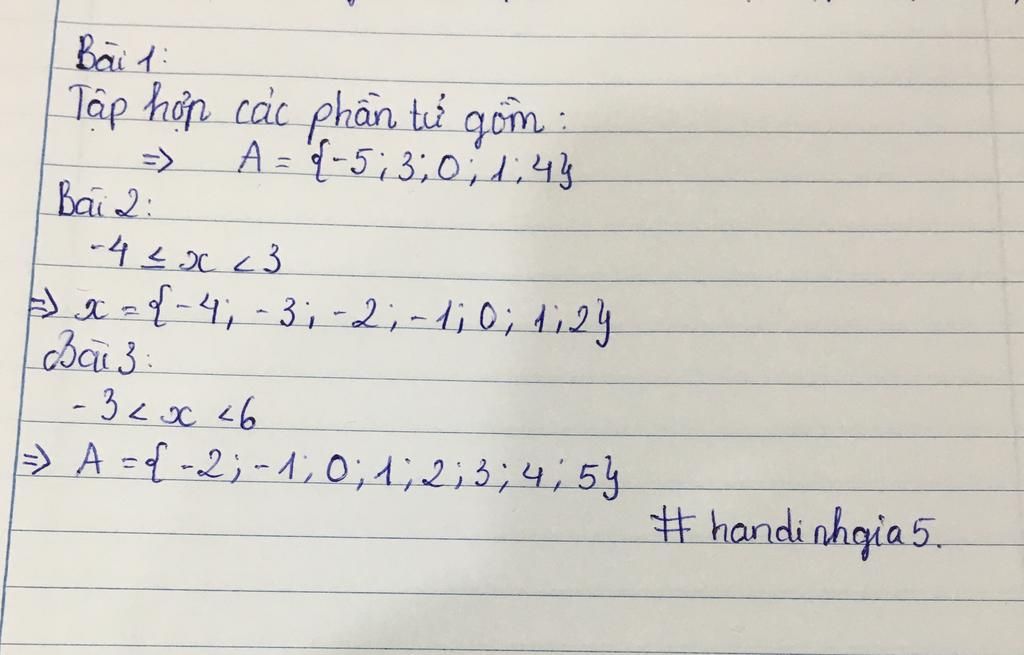 Bài 1:
Tập hợp các phần tử gồm:
=> A = {-5; 3; 0; 1; 4}
Bài 2:
-4 ≤ x < 3
=> x = {-4; -3; -2; -1; 0; 1; 2}
Bài 3:
-3 < x < 6
=> A = {-2; -1; 0; 1; 2; 3; 4; 5}
# handinhgia5.